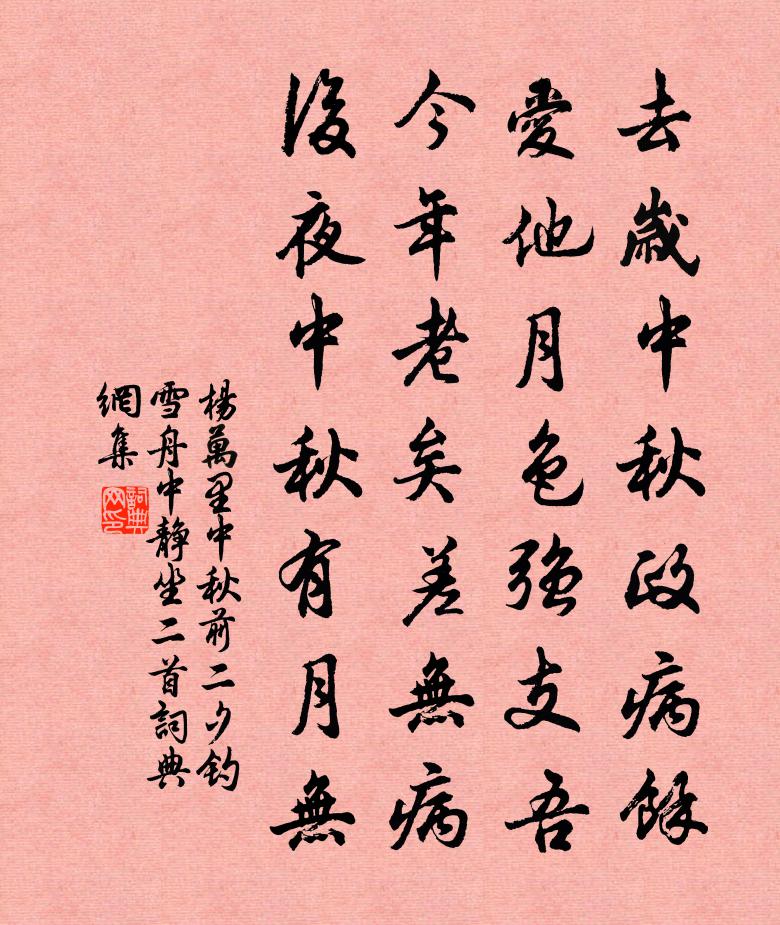 去歲中秋政病餘
愛他月色強支吾
今年老矣差無病
後夜中秋有月無
楊萬里中秋前二夕釣
雪舟中靜坐二首詞典
網集
詞典
网印